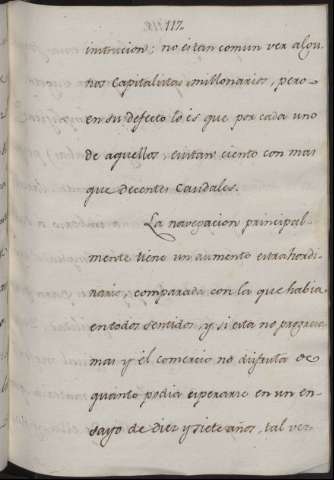 117.
intrucion; no es tan comun ver algu-
nos Capitalistas millonarios, pero
en su defecto lo es que por cada uno
de aquellos, existan ciento con mas
que Decentes Caudales.
La navegacion principal-
mente tiene un aumento extrahordi-
nario, comparada con la que habia
en todos sentidos, y si esta no progresa
mas y el comercio no disfruta de
quanto podia esperarse en un en-
sayo de Diez y siete años, tal vez